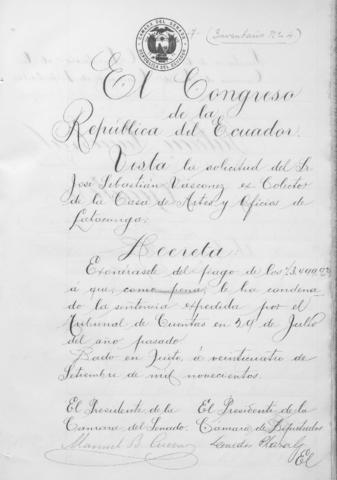 CAMARA DEL SENADO
REPUBLICA DEL ECUADOR
7. (Inventario No. 4)
El Congreso
de la
República del Ecuador.
Vista la solicitud del Sr.
José Sebastián Váscones ex Colector
de la Casa de Artes y Oficios de
Latacunga;
Decreta
Exonerásele del pago de los
á que, como pena, le ha condena-
do la sentencia expedida por el
Tribunal de Cuentas en 29 de Julio
del año pasado.
Dado en Quito, á veinticuatro de
Setiembre de mil novecientos.
El Presidente de la
Camara del Senado.
El Presidente de la
Camara de Diputados
Manuel B. Cueva
El